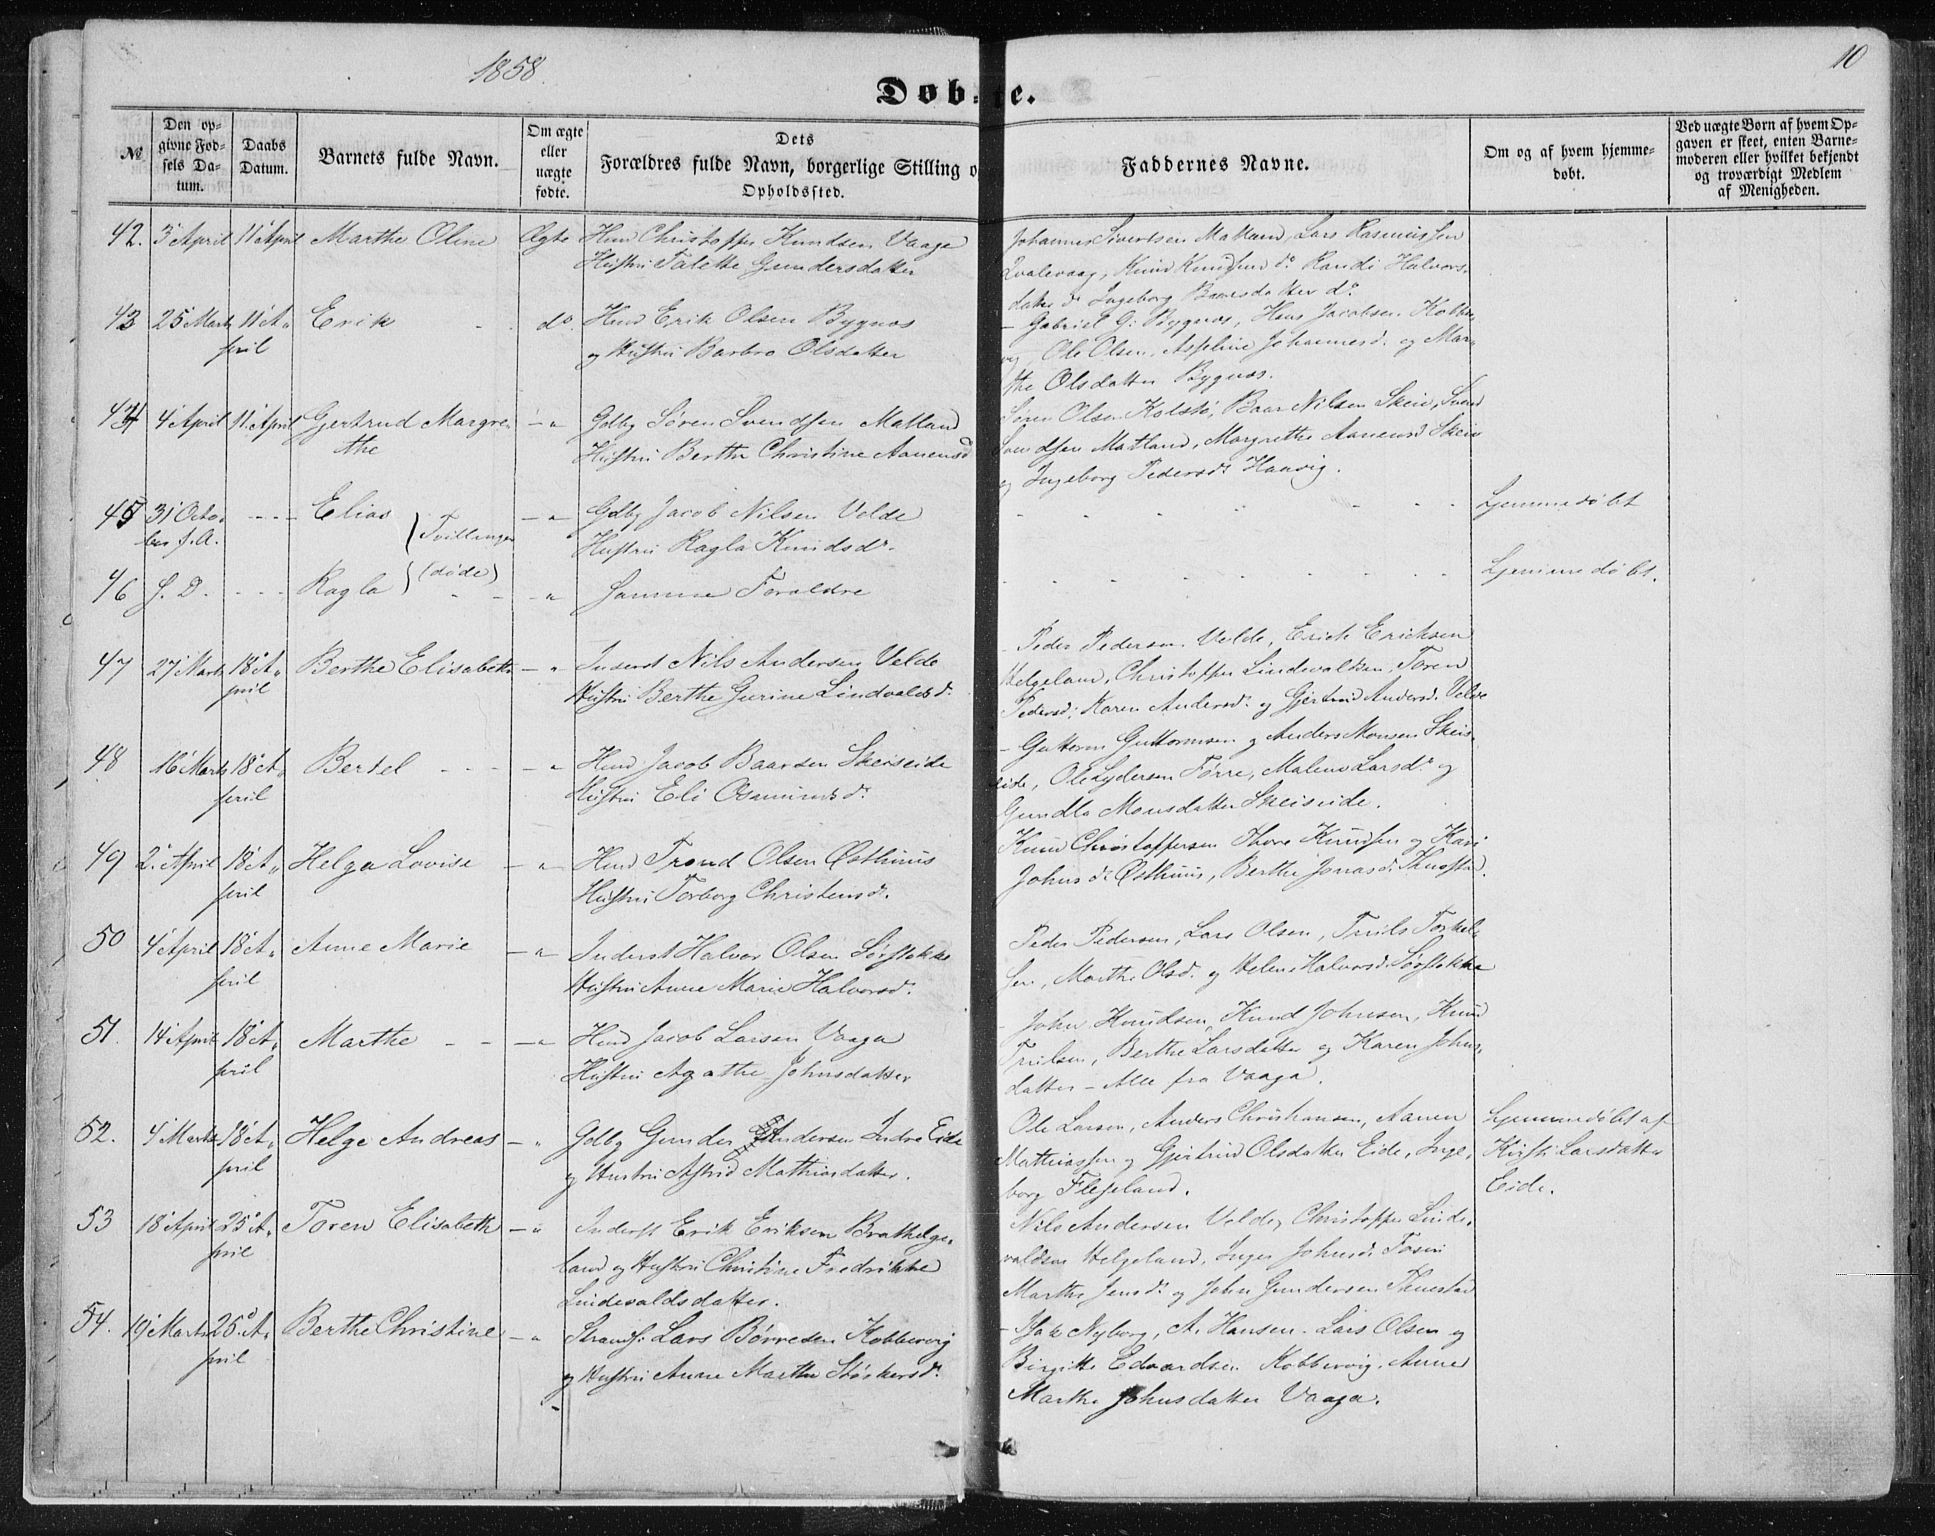 1858.
10
Døbte.
№
Den op-
givne Fød-
sels Da-
tum.
Daabs
Datum.
Barnets fulde Navn.
Om ægte
eller
uægte
fødte.
Dets
Forældres fulde Navn, borgerlige Stilling o
Opholdssted.
Faddernes Navne.
Om og af hvem hjemme-
døbt.
Ved uægte Børn af hvem Op-
gaven er skeet, enten Barne-
moderen eller hvilket bekjendt
og troværdigt Medlem
af Menigheden.
42. 3 April 11 April Marthe Oline Ægte Huusd Christopher Knudsen Vaage
Hustru Talette Gundersdatter
Johannes Sivertsen Matland, Lars Rasmussen
Qvalevaag, Knud Knudsen do. Randi Halvors-
datter do Ingeborg Baarsdatter do.
43 25 Marts 11 A-
pril Erik do. Huusd Erik Olsen Bygnes
og Hustru Barbro Olsdatter
Gabriel G. Bygnes, Hans Jacobsen Kobber-
vig Ole Olsen, Aspline Johannesd. og Mar-
the Olsdatter Bygnes.
44 4 April 11 April Gjertrud Margre-
the - " Gdby Søren Svendsen Matland
Hustru Berthe Christine Aanensd
Søren Olsen Kolstø, Baar Nilsen Skeie, Svend
Svendsen Matland, Margrethe Aanensd Skeie
og Ingeborg Pedersdr Haavig.
45 31 Octo-
ber f. A. - - - Elias } Tvillinger - " Gdby Jacob Nilsen Velde
Hustru Ragla Knudsdr.
hjemmedøbt
46 S. D. - - - Ragla } (døde) - " Samme Forældre
hjemmedøbt.
47 27 Marts 18 A-
pril Berthe Elisabeth - " Inderst Nils Andersen Velde
Hustru Berthe Gurine Lindvaldsdr.
Peder Pedersen Velde, Erich Ericksen
Helgeland, Christopher Lindevaldsen, Toren
Pedersd; Karen Andersdr. og Gjertrud Andersd. Velde
48 16 Marts 18 A-
pril Bertel - - - " Huusd Jacob Baardsen Skeiseide
Hustru Eli Osmundsdr.
Guttorm Guttormsen og Anders Monsen Skeis-
eide, Ole Lydersen Førre, Malene Larsdr og
Gundla Monsdatter Skeiseide.
49 2. April 18 A-
pril Helga Lovise - " Huusd Trond Olsen Østhuus
Hustru Torborg Christensdr.
Knud Christophersen Thore Knudsen og Kari
Johnsdr Østhuus, Berthe Jonasdr. Thuestad.
50 4 April 18 A-
pril Anne Marie - " Inderst Halvor Olsen Sørstokke
Hustru Anne Marie Halvorsdr.
Peder Pedersen, Lars Olsen, Truls Torkel-
sen, Marthe Olsd. og Helene Halvorsd. Sørstokke
51. 14 April 18 A-
pril Marthe - - - " Huusd Jacob Larsen Vaaga
Hustru Agathe Johnsdatter
John Knudsen, Knud Johnsen, Knud
Trulsen, Berthe Larsdatter og Karen Johns-
datter - Alle fra Vaaga.
52. 4 Marts 18 A-
pril Helge Andreas - " Gdby Gunder Andersen Indre Eide
og Hustru Astrid Mathiasdatter.
Ole Larsen, Anders Christiansen, Aanen
Mathiassen og Gjertrud Olsdatter Eide, Inge-
borg Fleseland.
Hjemmedøbt af
Kirsti Larsdatter
Eide.
53 18 April 25 A-
pril Toren Elisabeth - " Inderst Erik Eriksen Brathelge-
land og Hustru Christine Fredrikke
Lindevaldsdatter.
Nils Andersen Velde, Christopher Linde-
valdsen Helgeland, Inger Johnsdr
Marthe Jensdr. og John Gundersen Thuestad
54. 19 Marts 25 A-
pril Berthe Christine - " Strands. Lars Børresen Kobbervig
og Hustru Anne Marthe Størkersdr.
Isak Nyborg, A. Hansen. Lars Olsen og
Birgitte Edvardsen Kobbervig, Anne
Marthe Johnsdatter Vaaga.